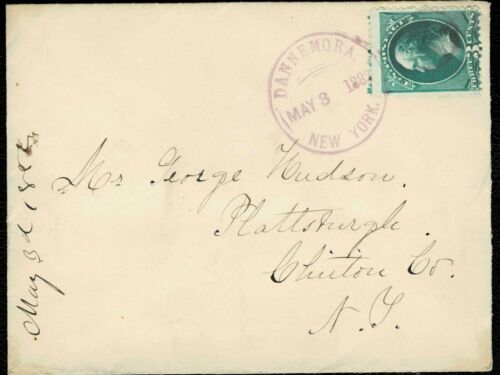 DANNEMORA,
MAY 3 188
NEW YORK.
Mr George Hudson.
Plattsburgh.
Clinton Co.
N. Y.
May 3d